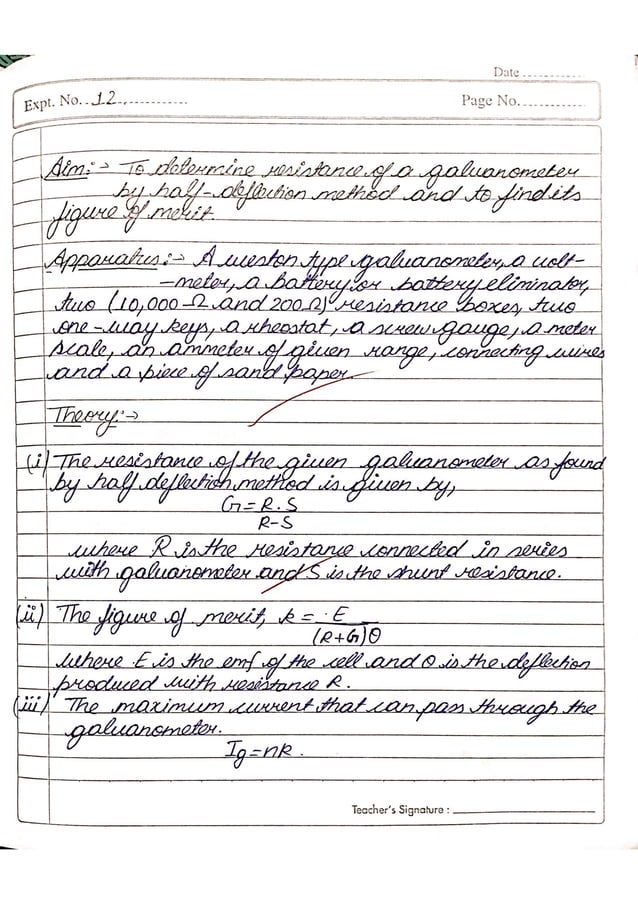 Date
Expt. No. 12.
Page No.
Aim:→ To determine resistance of a galvanometer
by half-deflection method and to find its
figure of merit.
Apparatus:→ A weston type galvanometer, a volt-
-meter, a battery or battery eliminator,
two (10,000-Ω and 200 Ω) resistance boxes, two
one-way keys, a rheostat, a screw gauge, a meter
scale, an ammeter of given range, connecting wires
and a piece of sand paper.
Theory:→
(i) The resistance of the given galvanometer as found
by half deflection method is given by,
G = R.S
R-S
where R is the resistance connected in series
with galvanometer and S is the shunt resistance.
(ii) The figure of merit, k = E
(R+G)θ
where E is the emf of the cell and θ is the deflection
produced with resistance R.
(iii) The maximum current that can pass through the
galvanometer.
Ig = nR.
Teacher's Signature :